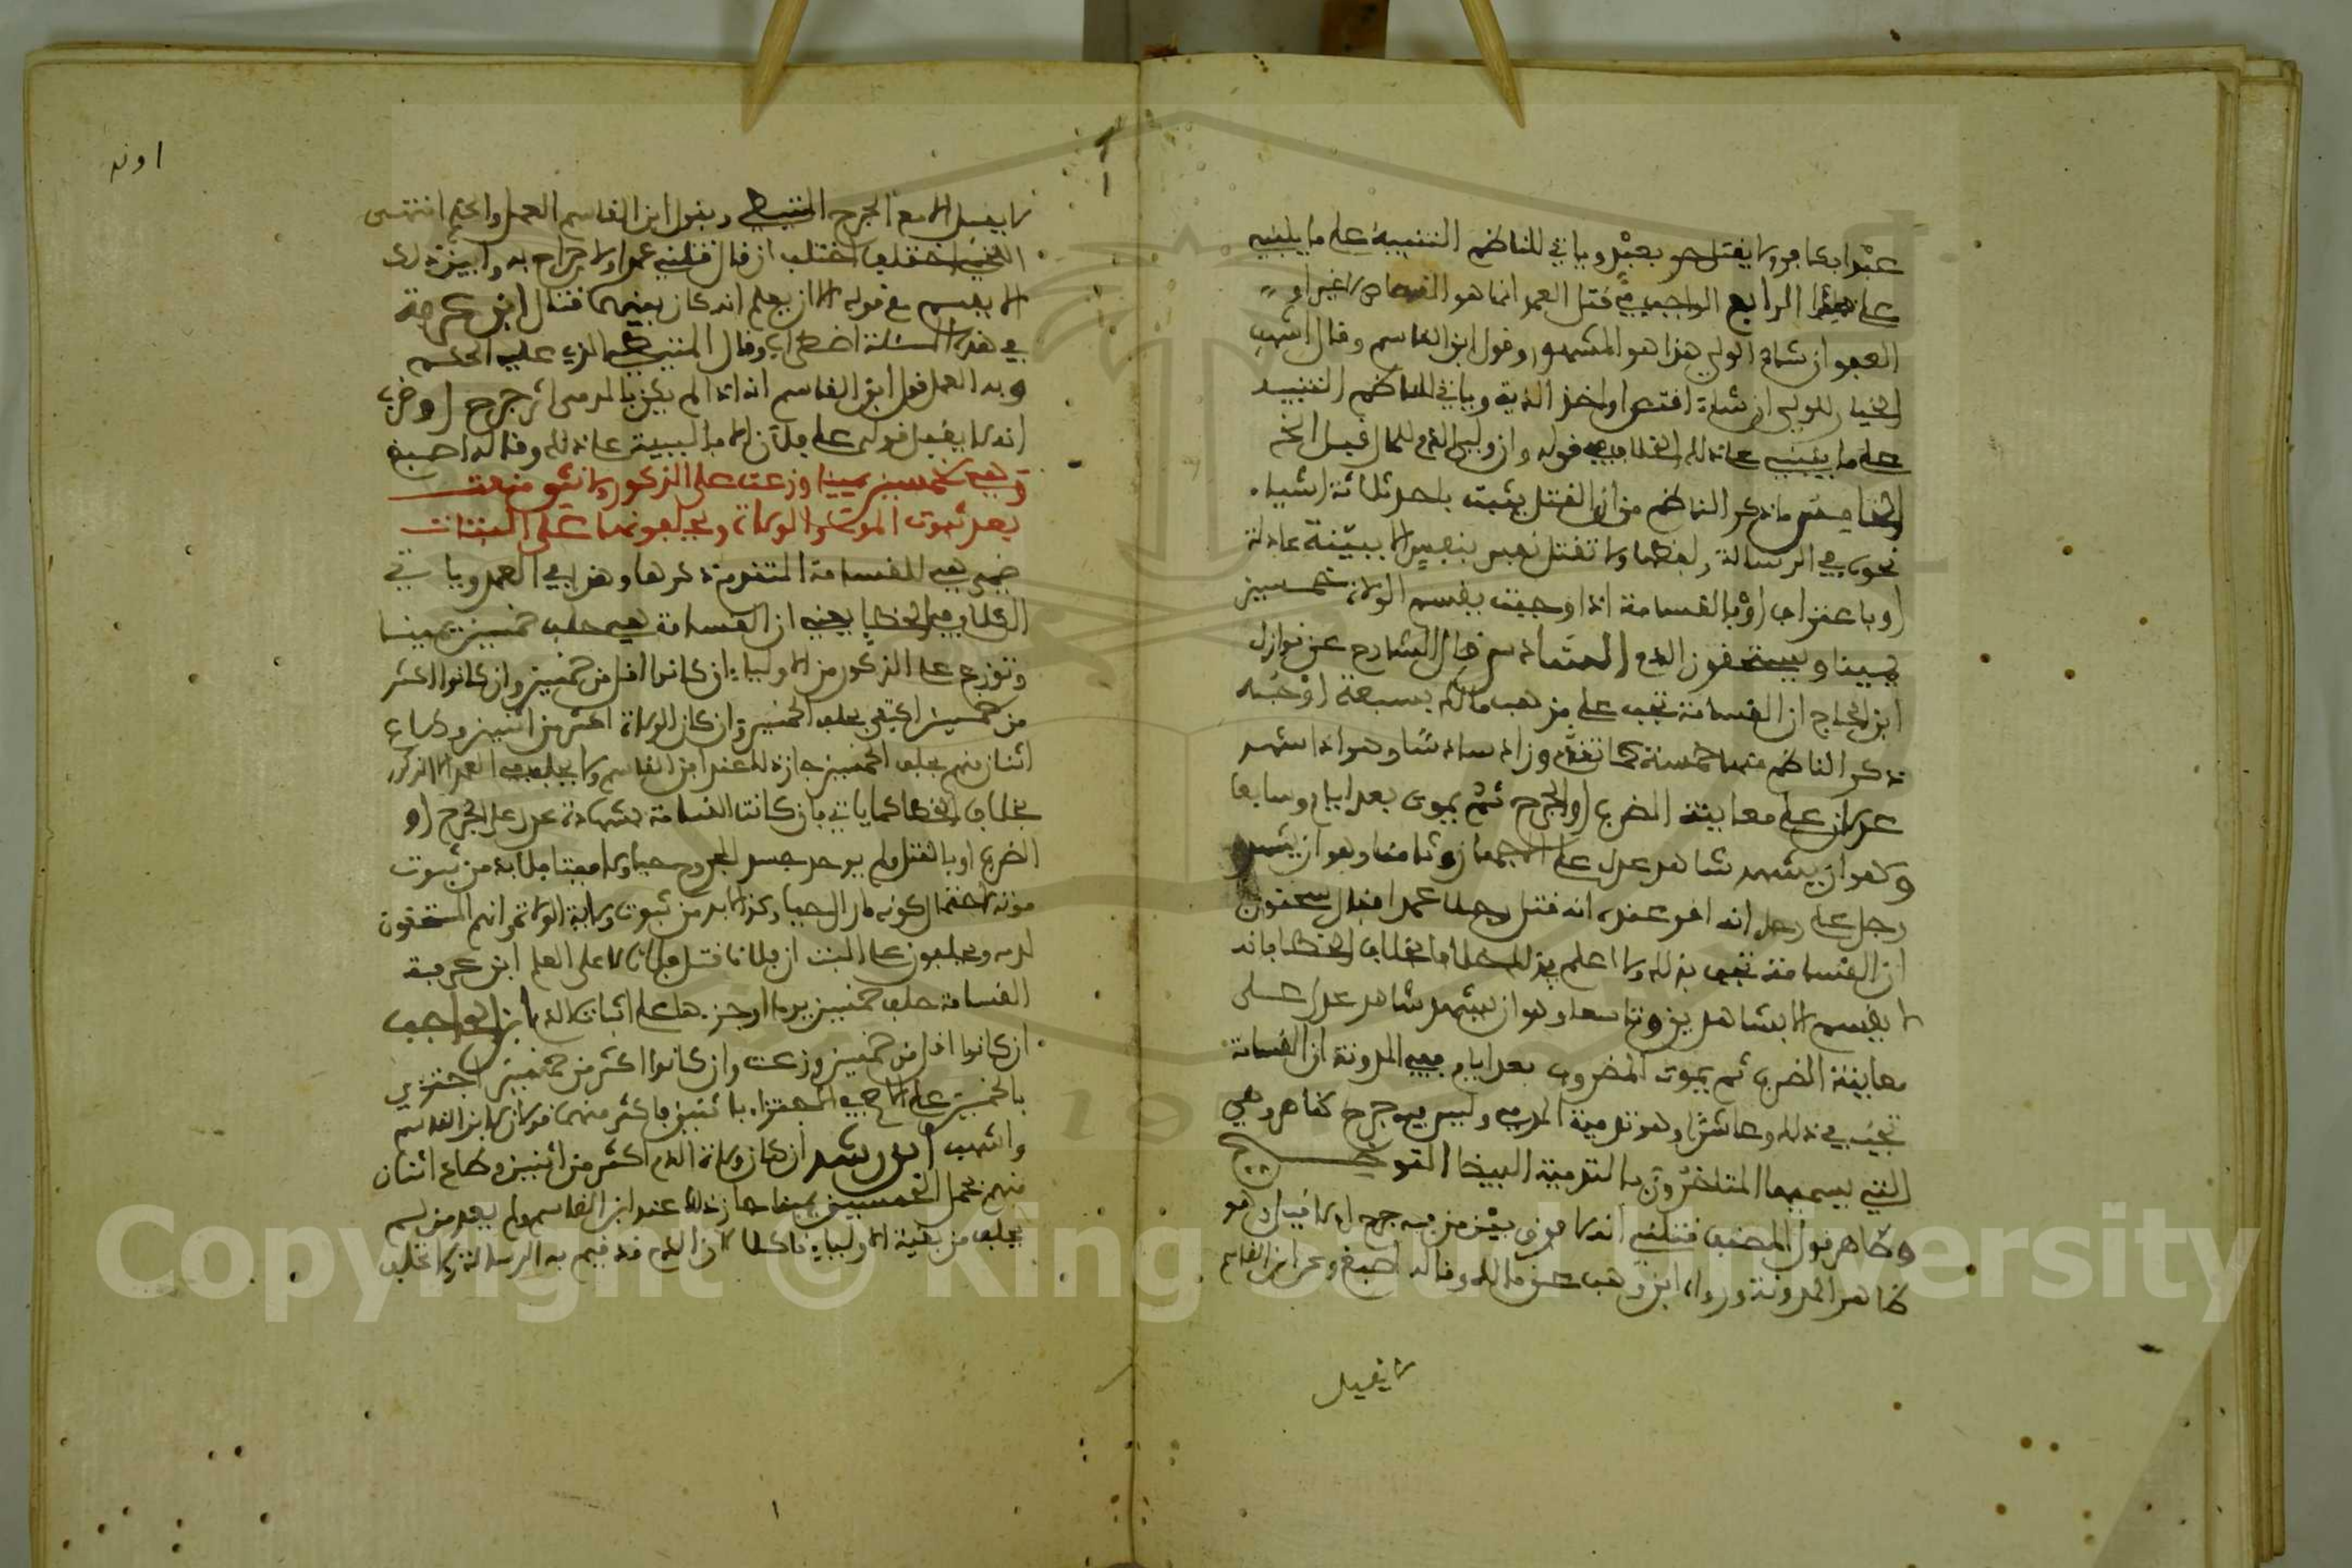 عبدا بكافر ولا يقتل حر بعبد وياتي للناظم التنبيه على ما ينبني
على هذا الرابع الواجب في قتل العمد انما هو القصاص لا غير او
العفو ان شاء الولي هذا هو المشهور وقول ابن القاسم وقال اشهب
الخيار للولي ان شاء اقتص او اخذ الدية وياتي للناظم التنبيه
على ما ينبني على ذلك الخلاف في قوله وان ولي الدم للمال قبل الخ
الخامس ما ذكر الناظم من ان القتل يثبت باحد ثلاثة اشياء
نحوه في الرسالة ولفظها ولا تقتل نفس بنفس الا ببينة عادلة
او باعتراف او بالقسامة اذا وجبت يقسم الولاة خمسين
يمينا ويستحقون الدم السادس قال الشارح عن نوازل
ابن الحاج ان القسامة تجب على مذهب مالك بسبعة اوجه
ذكر الناظم منها خمسة كما تقدم وزاد سادسا وهو اذا شهد
عدلان على معاينة الضرب او الجرح ثم يموت بعد ايام وسابعا
وهو ان يشهد شاهد عدل على وثامنا وهو ان يشهد
رجل على رجل انه اقر عنده انه قتل رجلا عمدا فقال سحنون
ان القسامة تجب بذلك ولا اعلم في ذلك خلافا بخلاف الخطا فانه
لا يقسم الا بشاهدين وتاسعا وهو ان يشهد شاهد عدل على
معاينة الضرب ثم يموت المضروب بعد ايام ففي المدونة ان القسامة
تجب في ذلك وعاشرا وهو تدمية المدمى وليس فيه جرح ظاهر وهي
التي يسميها المتاخرون بالتدمية البيضا التوضيح
وظاهر قول المصنف قتلني انه لا فرق بين من فيه جرح او لا قيل وهو
ظاهر المدونة ورواه ابن وهب عن مالك وقاله اصبغ وعن ابن القاسم
لا يقبل
لا يقبل الا مع الجرح المتيطي وبقول ابن القاسم العمل والحكم انتهى
اللخمي اختلف ان قال قتلني عمدا ولا جراح به وابين ذلك
الا يقسم مع قوله الا ان يعلم انه كان بينهما قتال ابن عرفة
في هذه المسئلة اضطراب وقال المتيطي الذي عليه الحكم
وبه العمل قول ابن القاسم انه اذا لم يكن بالمدمى اثر جرح او ضرب
انه لا يقبل قوله على فلان الا بالبينة على ذلك وقاله اصبغ
وهي بخمسين يمينا وزعت على الذكور ولانثى منعت
بعد ثبوت الموت والولاة ويحلفونها على البتات
ضمير هي للقسامة المتقدم ذكرها وهذا في العمد وياتي
الكلام في الخطا يعني ان القسامة هي حلف خمسين يمينا
وتوزع على الذكور من الاولياء ان كانوا اقل من خمسين وان كانوا اكثر
من خمسين اكتفي بحلف الخمسين وان كان الولاة اكثر من اثنين وطاع
اثنان منهم بحلف الخمسين جاز ذلك عند ابن القاسم ولا يحلف في العمد الا الذكور
بخلاف الخطا كما ياتي فان كانت القسامة بشهادة عدل على الجرح او
الضرب او بالقتل ولم يوجد جسد المجروح حيا ولا ميتا فلا بد من ثبوت
موته لاحتمال كونه مازال حيا وكذا لابد من ثبوت ولاية الولاة وانهم المستحقون
لدمه ويحلفون على البت ان فلانا قتل فلانا لا على العلم ابن عرفة
القسامة حلف خمسين يمينا او جزءها على اثبات الدم ابن الحاجب
ان كانوا اقل من خمسين وزعت وان كانوا اكثر من خمسين اجتزي
بالخمسين على الاصح في الاجتزاء باثنين فاكثر منهما قولان لابن القاسم
واشهب ابن رشد ان كان ولاة الدم اكثر من اثنين وطاع اثنان
منهم بحمل الخمسين يمينا جاز ذلك عند ابن القاسم ولم يعد من لم
يحلف من بقية الاولياء ناكلا لان الدم قد قيم به الرسالة ولا تحلف